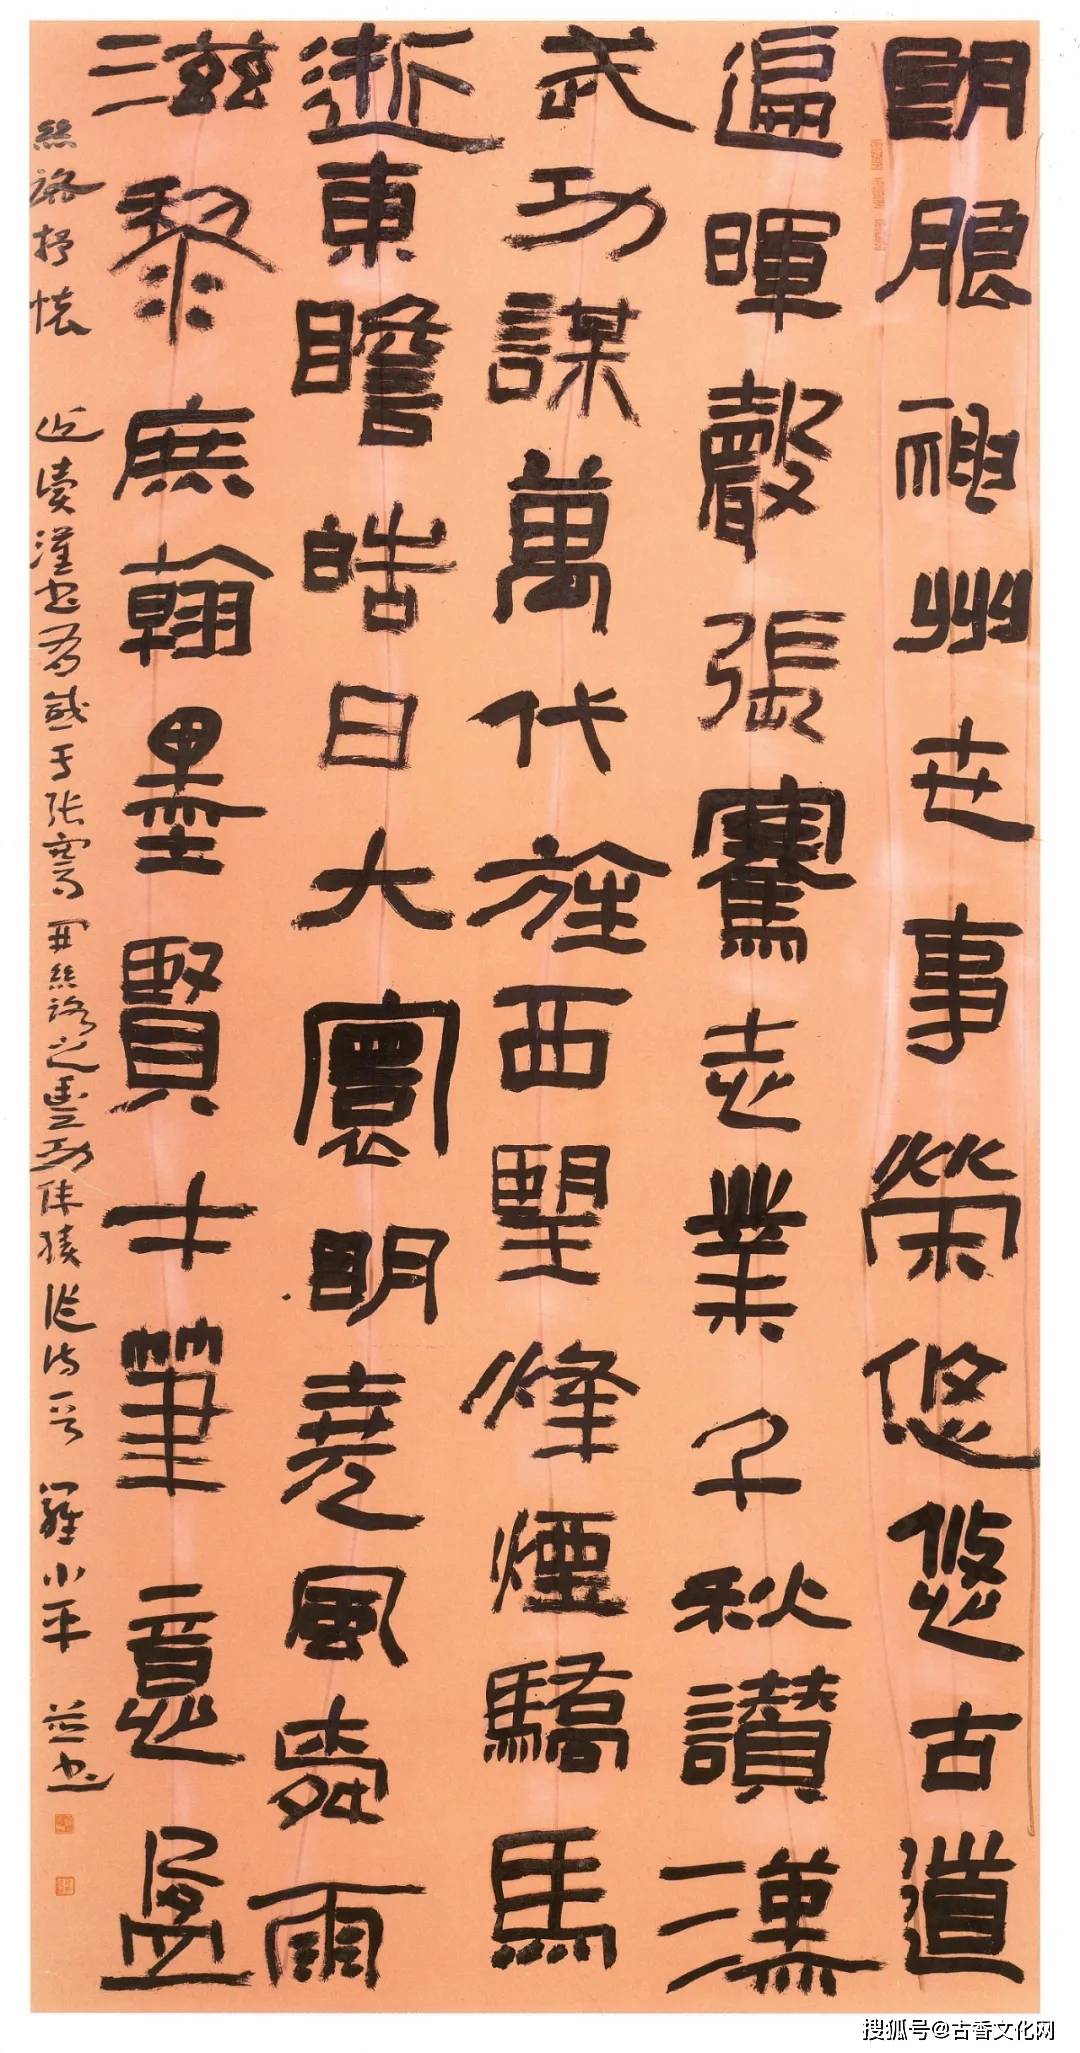 朗朗神州世事榮悠悠古道
遍暉聲張騫志業千秋讚漢
武功謀萬代旌西望烽煙驕馬
逝東瞻皓日大寰明堯風舜雨
滋黎庶翰墨賢士筆意盈
絲路抒懷 近读漢书有感于张骞開絲路之豐功伟绩作诗一首 羅小平 並书
搜狐号@古香文化网